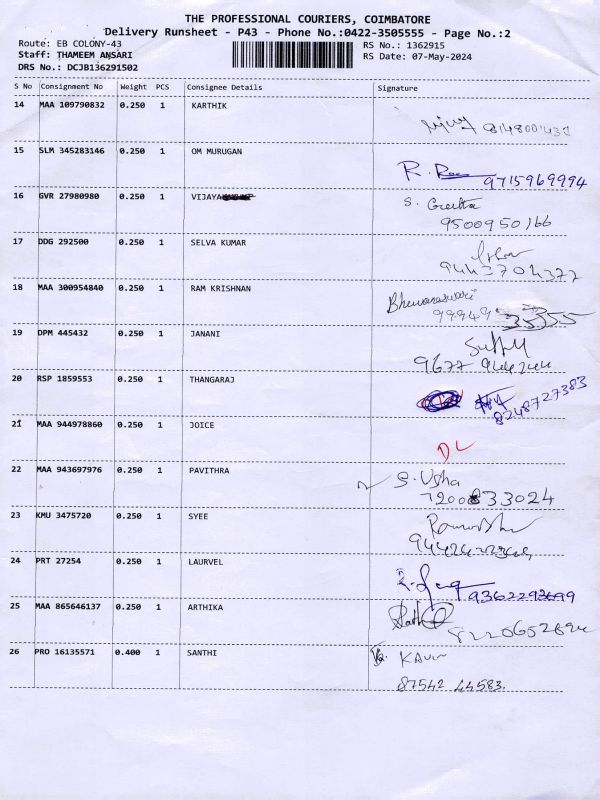 THE PROFESSIONAL COURIERS, COIMBATORE
Delivery Runsheet - P43 - Phone No.:0422-3505555 - Page No.:2
Route: EB COLONY-43 RS No.: 1362915
Staff: THAMEEM ANSARI RS Date: 07-May-2024
DRS No.: DCJB136291502
S No Consignment No Weight PCS Consignee Details Signature
14 MAA 109790832 0.250 1 KARTHIK
15 SLM 345283146 0.250 1 OM MURUGAN
R. 9715969994
16 GVR 27980980 0.250 1 VIJAYA S. Geetha
9500950166
17 DDG 292500 0.250 1 SELVA KUMAR
18 MAA 300954840 0.250 1 RAM KRISHNAN Bhuvaneswari
99949 35355
19 DPM 445432 0.250 1 JANANI
9677
20 RSP 1859553 0.250 1 THANGARAJ
8248727383
21 MAA 944978860 0.250 1 JOICE
DL
22 MAA 943697976 0.250 1 PAVITHRA S. Usha
7200833024
23 KMU 3475720 0.250 1 SYEE
24 PRT 27254 0.250 1 LAURVEL
9362293699
25 MAA 865646137 0.250 1 ARTHIKA
26 PRO 16135571 0.400 1 SANTHI KAVIN
87542 44583.